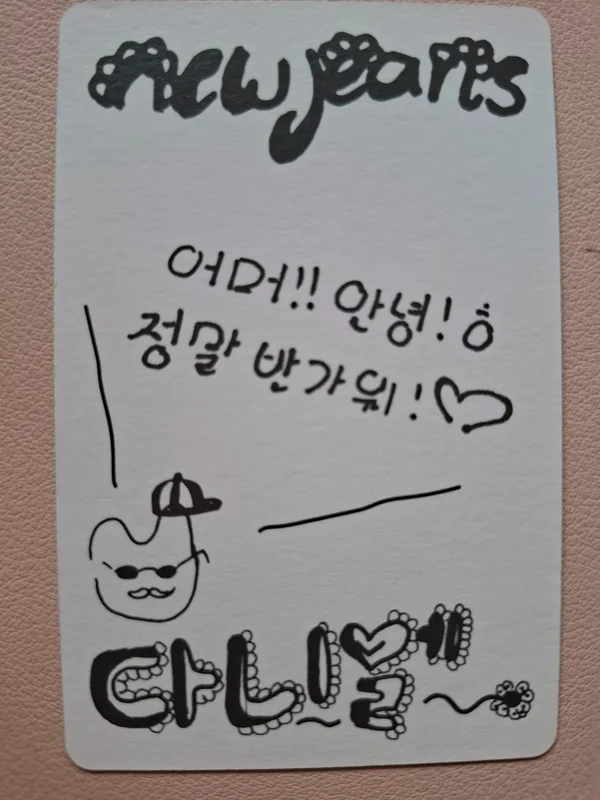 newjeans
어머!! 안녕! ㅎ
정말 반가워!♡
다니엘